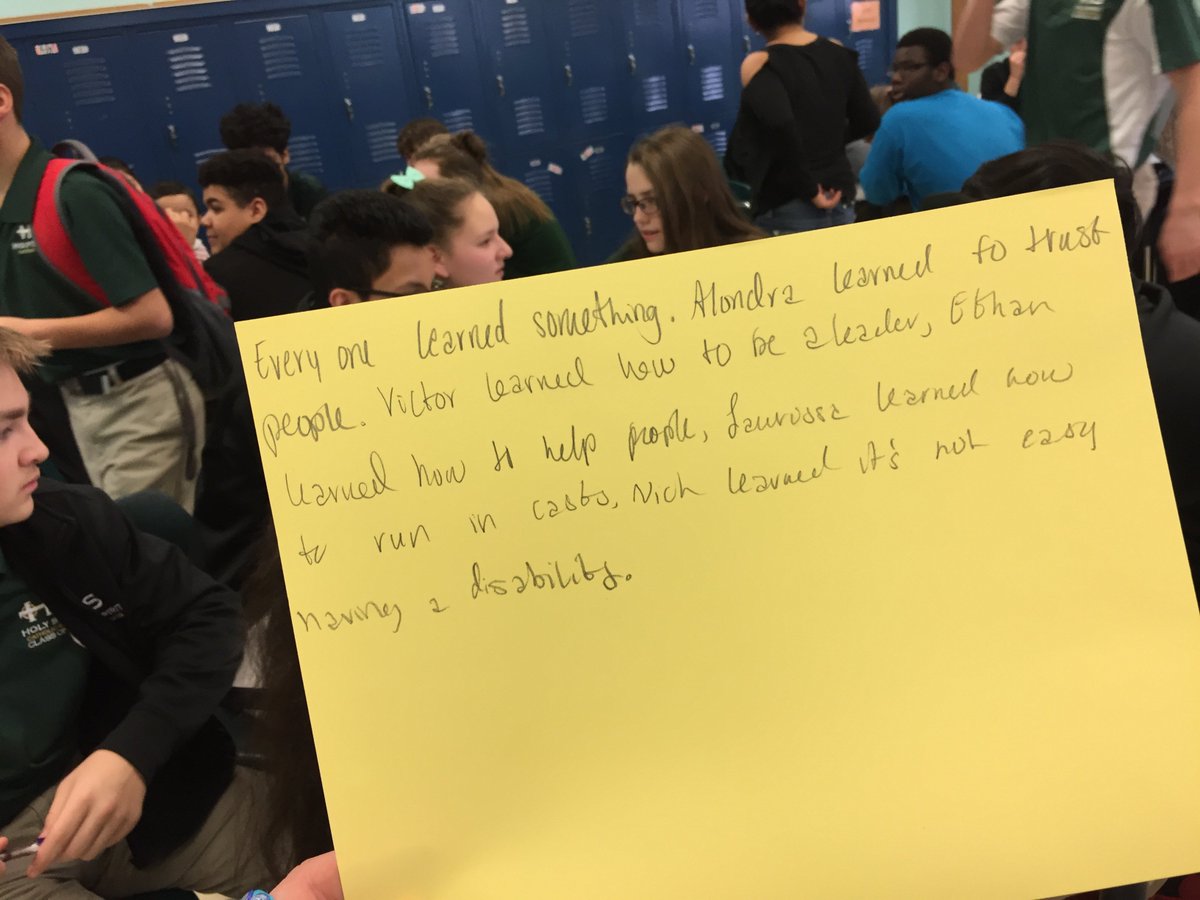 Every one learned something. Alondra learned to trust
people. Victor learned how to be a leader, Ethan
learned how to help people, Laurossa learned how
to run in casts, Nich learned it's not easy
having a disability.
HOLY
CLASS OF